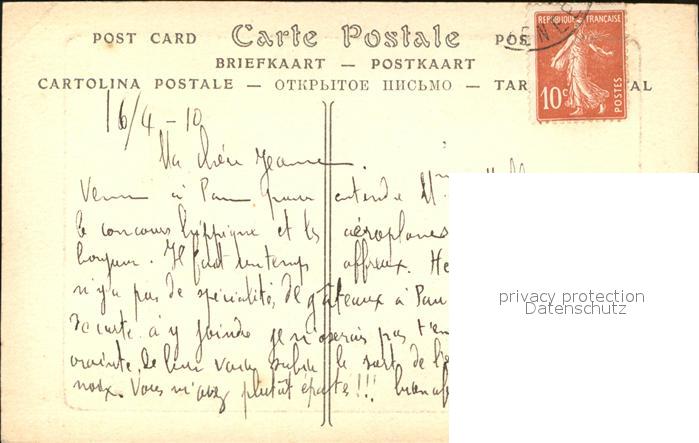 POST CARD — Carte Postale — POS
BRIEFKAART — POSTKAART
CARTOLINA POSTALE — ОТКРЫТОЕ ПИСЬМО — TAR AL
REPUBLIQUE FRANÇAISE
10c POSTES
16/4 - 10
Ma chère Jeanne.
Venu à Pau pour entendre M
le concours hippique et les aéroplanes
bonjour. Il fait un temps affreux. He
n'y a pas de spécialités de gâteaux à Pau
carte à y joindre je n'oserais pas t'en
crainte de leur voir subir le sort de l'
noix. Vous m'avez plutôt épatés !!!
privacy protection
Datenschutz